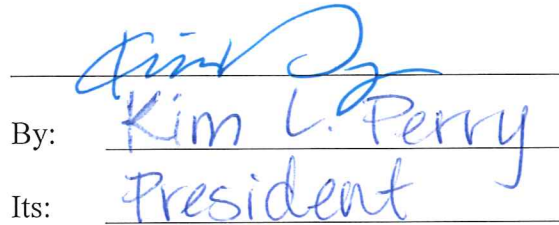 By: Kim L. Perry
Its: President